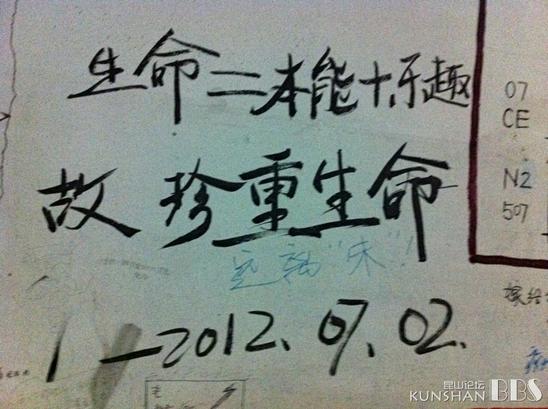 生命=本能+乐趣
故珍重生命
—2012.07.02.
07
CE
N2
507
嫁给
昆山论坛
KUNSHAN BBS